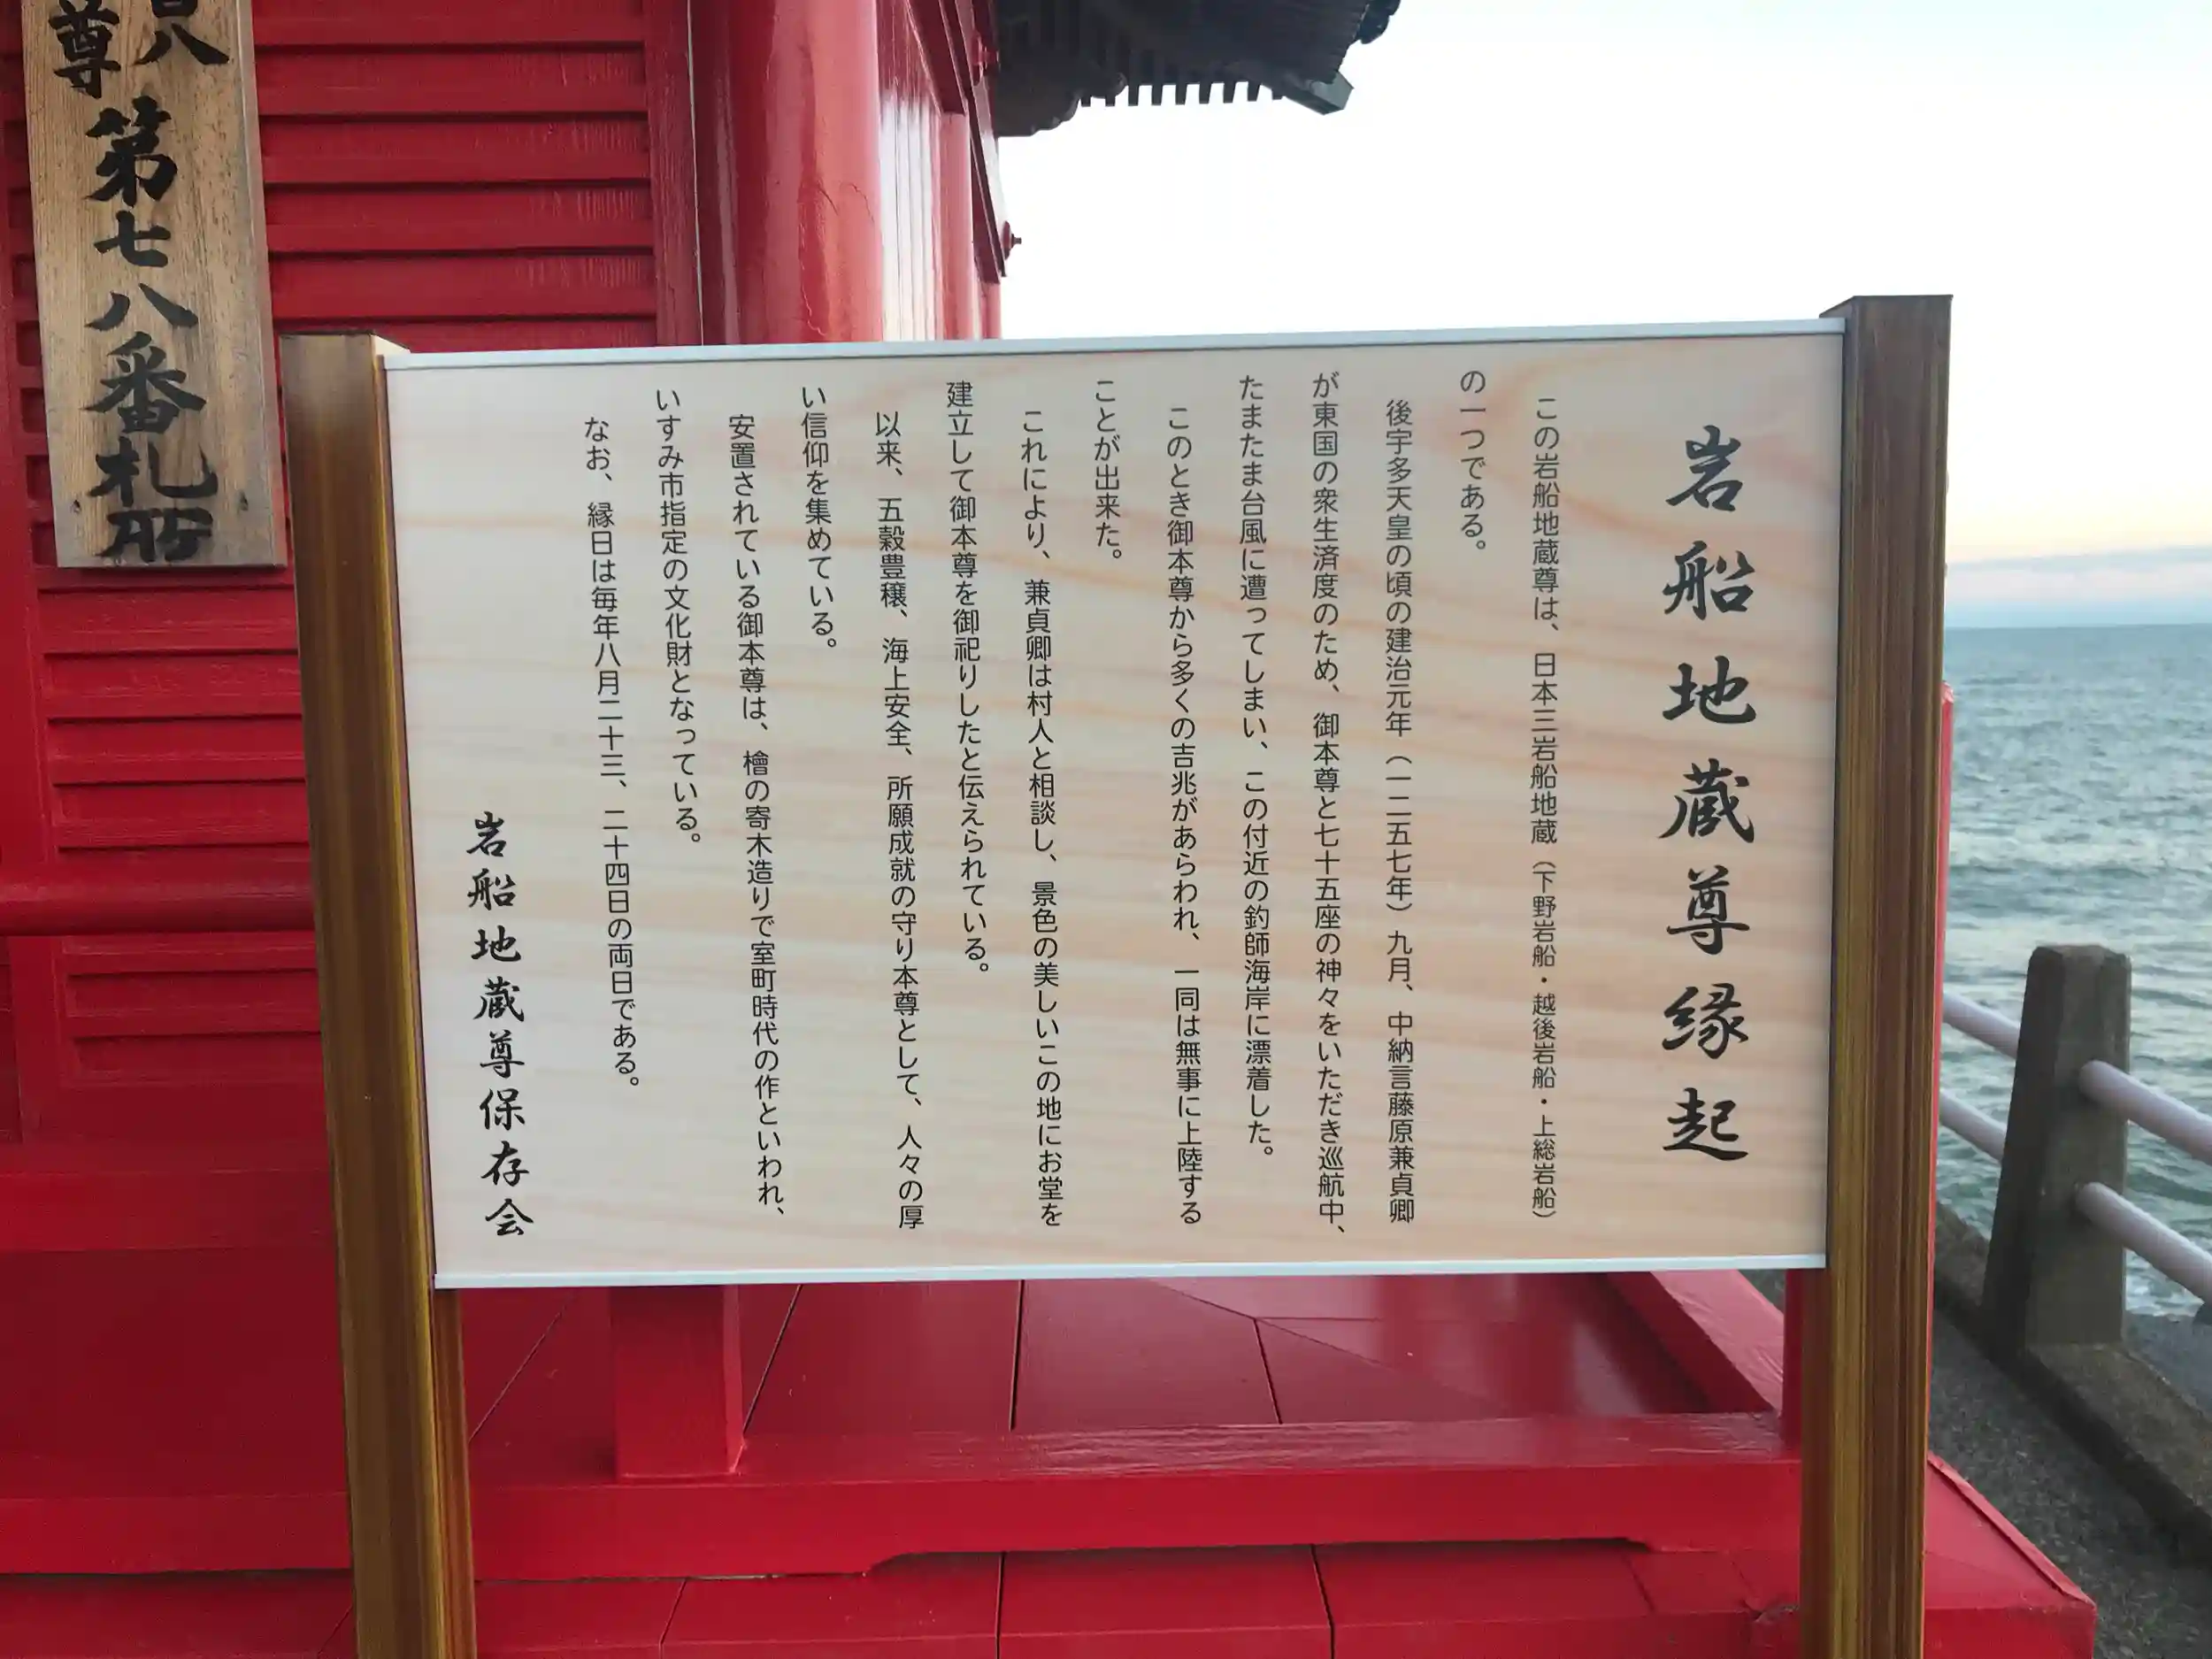 岩船地蔵尊縁起
この岩船地蔵尊は、日本三岩船地蔵(下野岩船・越後岩船・上総岩船)
の一つである。
後宇多天皇の頃の建治元年(一二五七年)九月、中納言藤原兼貞卿
が東国の衆生済度のため、御本尊と七十五座の神々をいただき巡航中、
たまたま台風に遭ってしまい、この付近の釣師海岸に漂着した。
このとき御本尊から多くの吉兆があらわれ、一同は無事に上陸する
ことが出来た。
これにより、兼貞卿は村人と相談し、景色の美しいこの地にお堂を
建立して御本尊を御祀りしたと伝えられている。
以来、五穀豊穣、海上安全、所願成就の守り本尊として、人々の厚
い信仰を集めている。
安置されている御本尊は、檜の寄木造りで室町時代の作といわれ、
いすみ市指定の文化財となっている。
なお、縁日は毎年八月二十三、二十四日の両日である。
岩船地蔵尊保存会
八
尊
第七八番札所